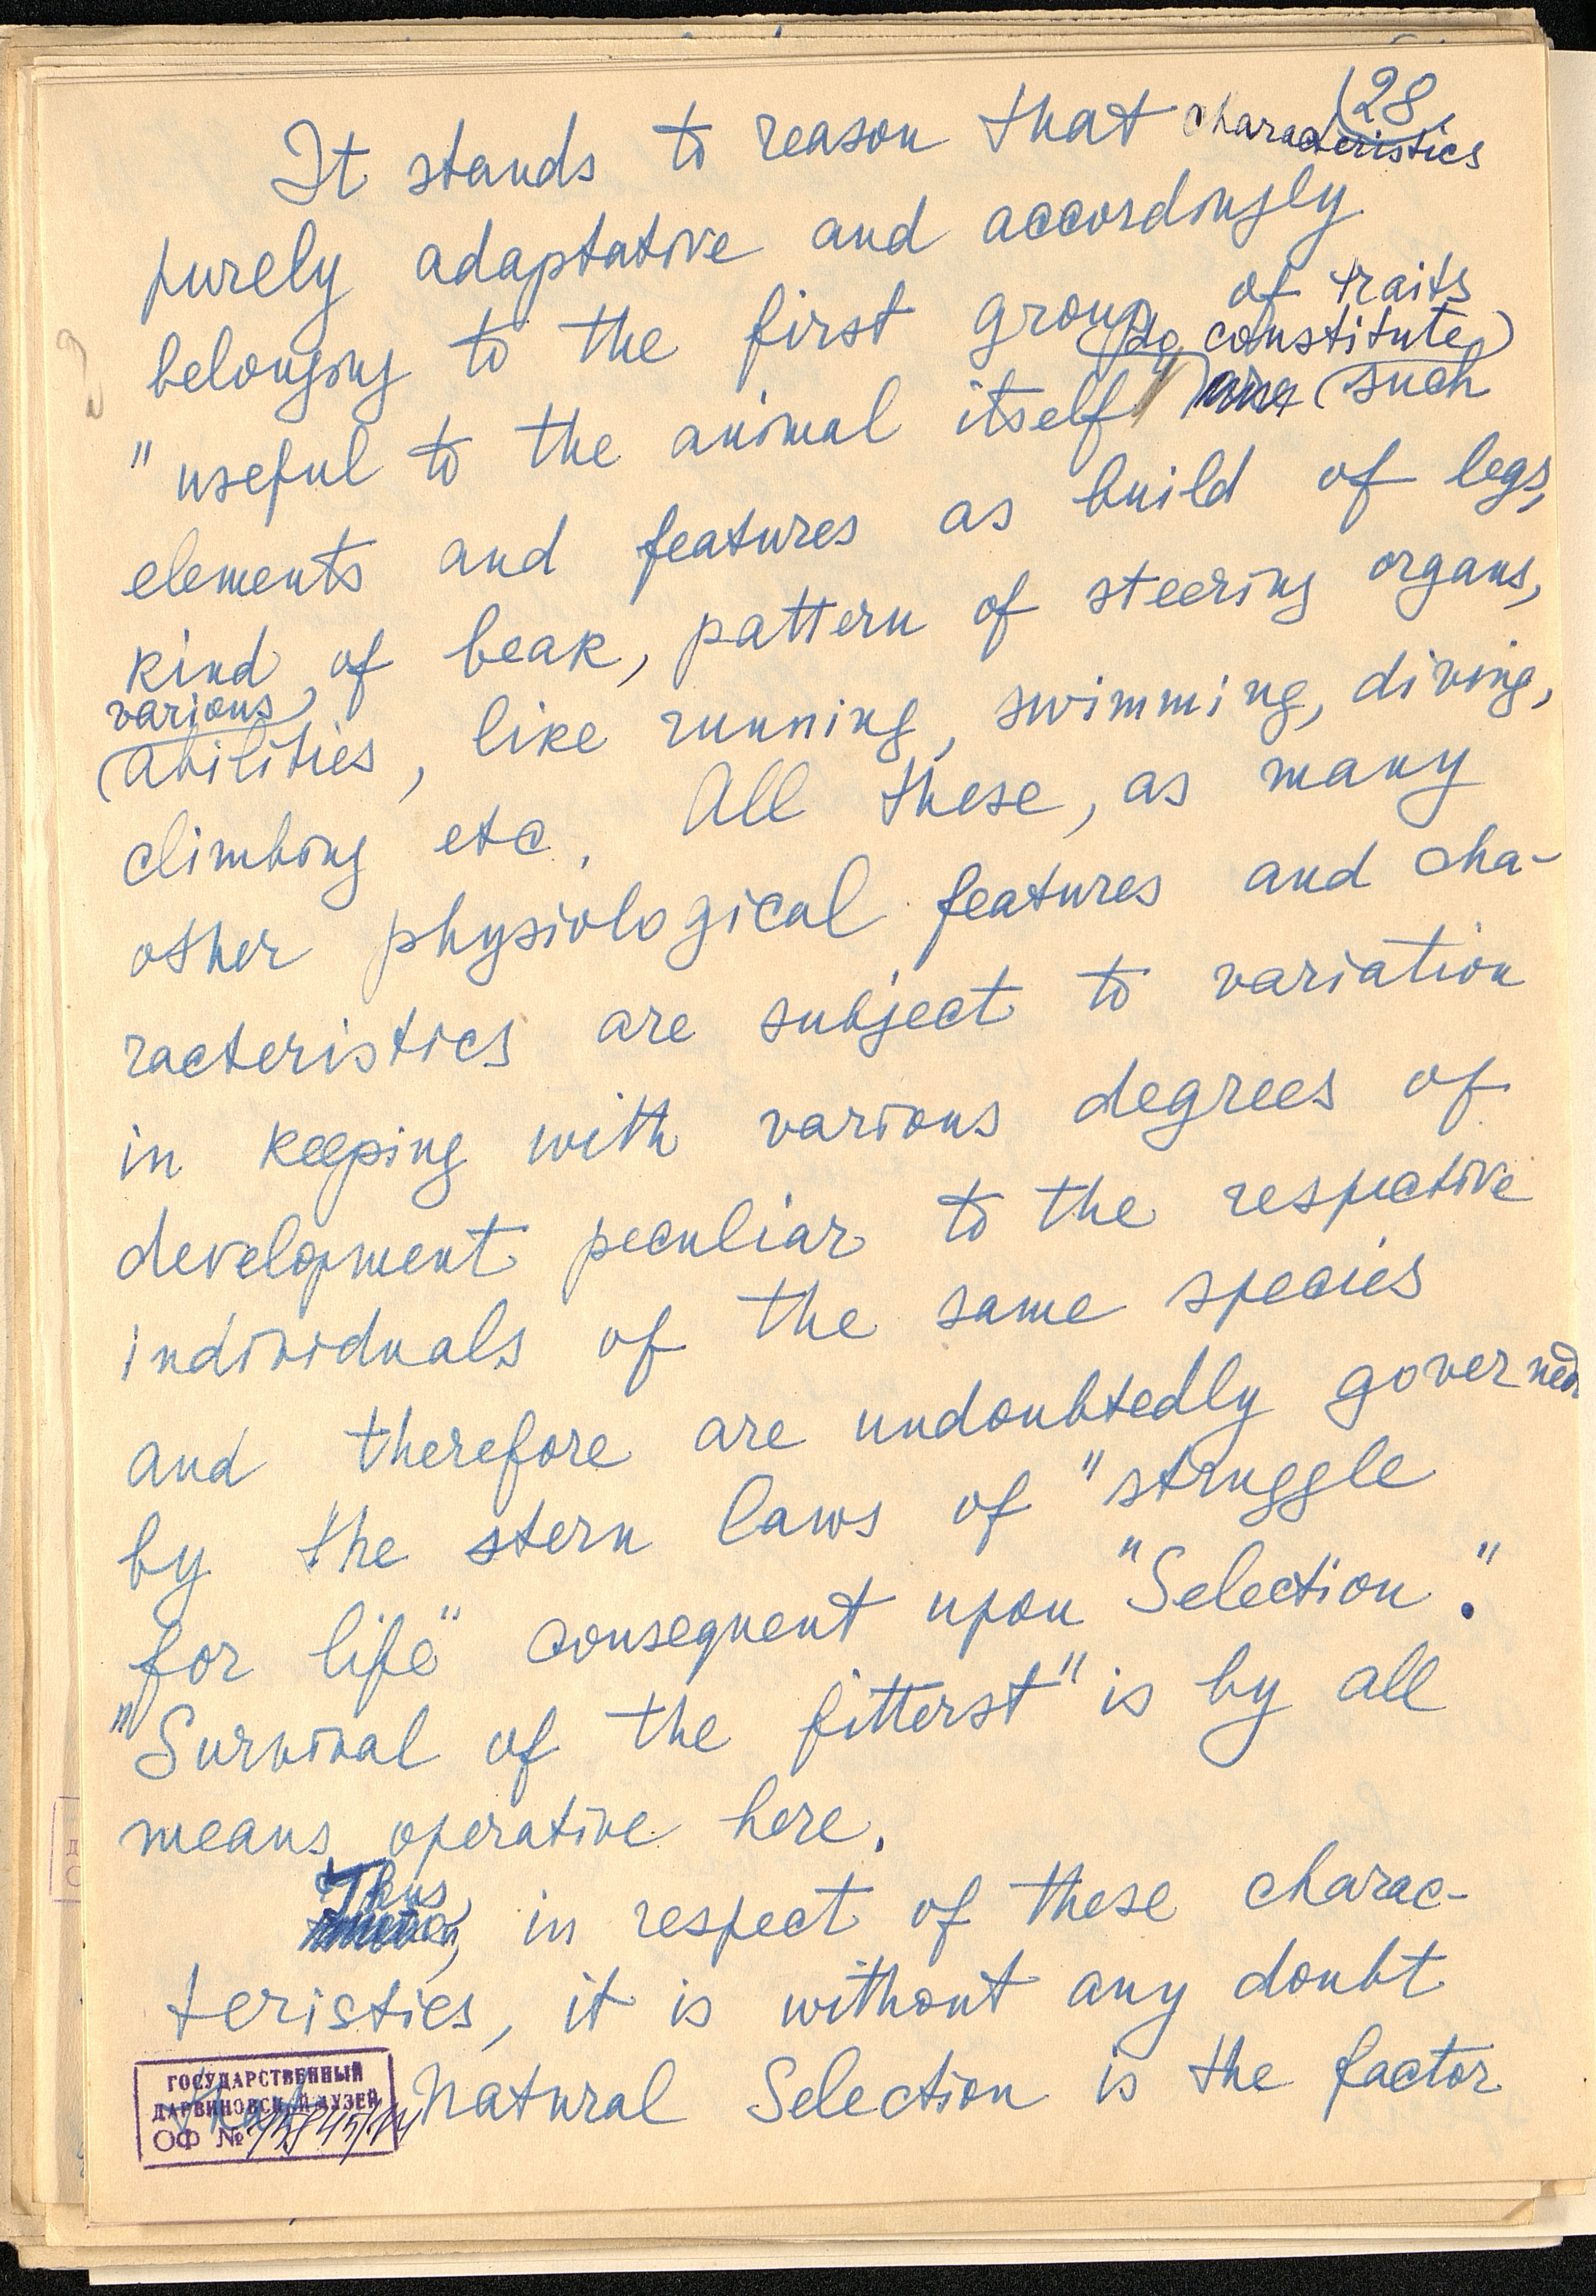 28
It stands to reason that characteristics
purely adaptative and accordingly
belonging to the first group of traits
do constitute
"useful to the animal itself" such
elements and features as build of legs,
kind of beak, pattern of steering organs,
various
abilities, like running, swimming, diving,
climbing etc. All these, as many
other physiological features and cha-
racteristics are subject to variation
in keeping with various degrees of
development peculiar to the respective
individuals of the same species
and therefore are undoubtedly governed
by the stern laws of "struggle
for life" consequent upon "Selection."
"Survival of the fitterst" is by all
means operative here.
Thus, in respect of these charac-
teristics, it is without any doubt
that Natural Selection is the factor
ГОСУДАРСТВЕННЫЙ
ДАРВИНОВСКИЙ МУЗЕЙ
ОФ №